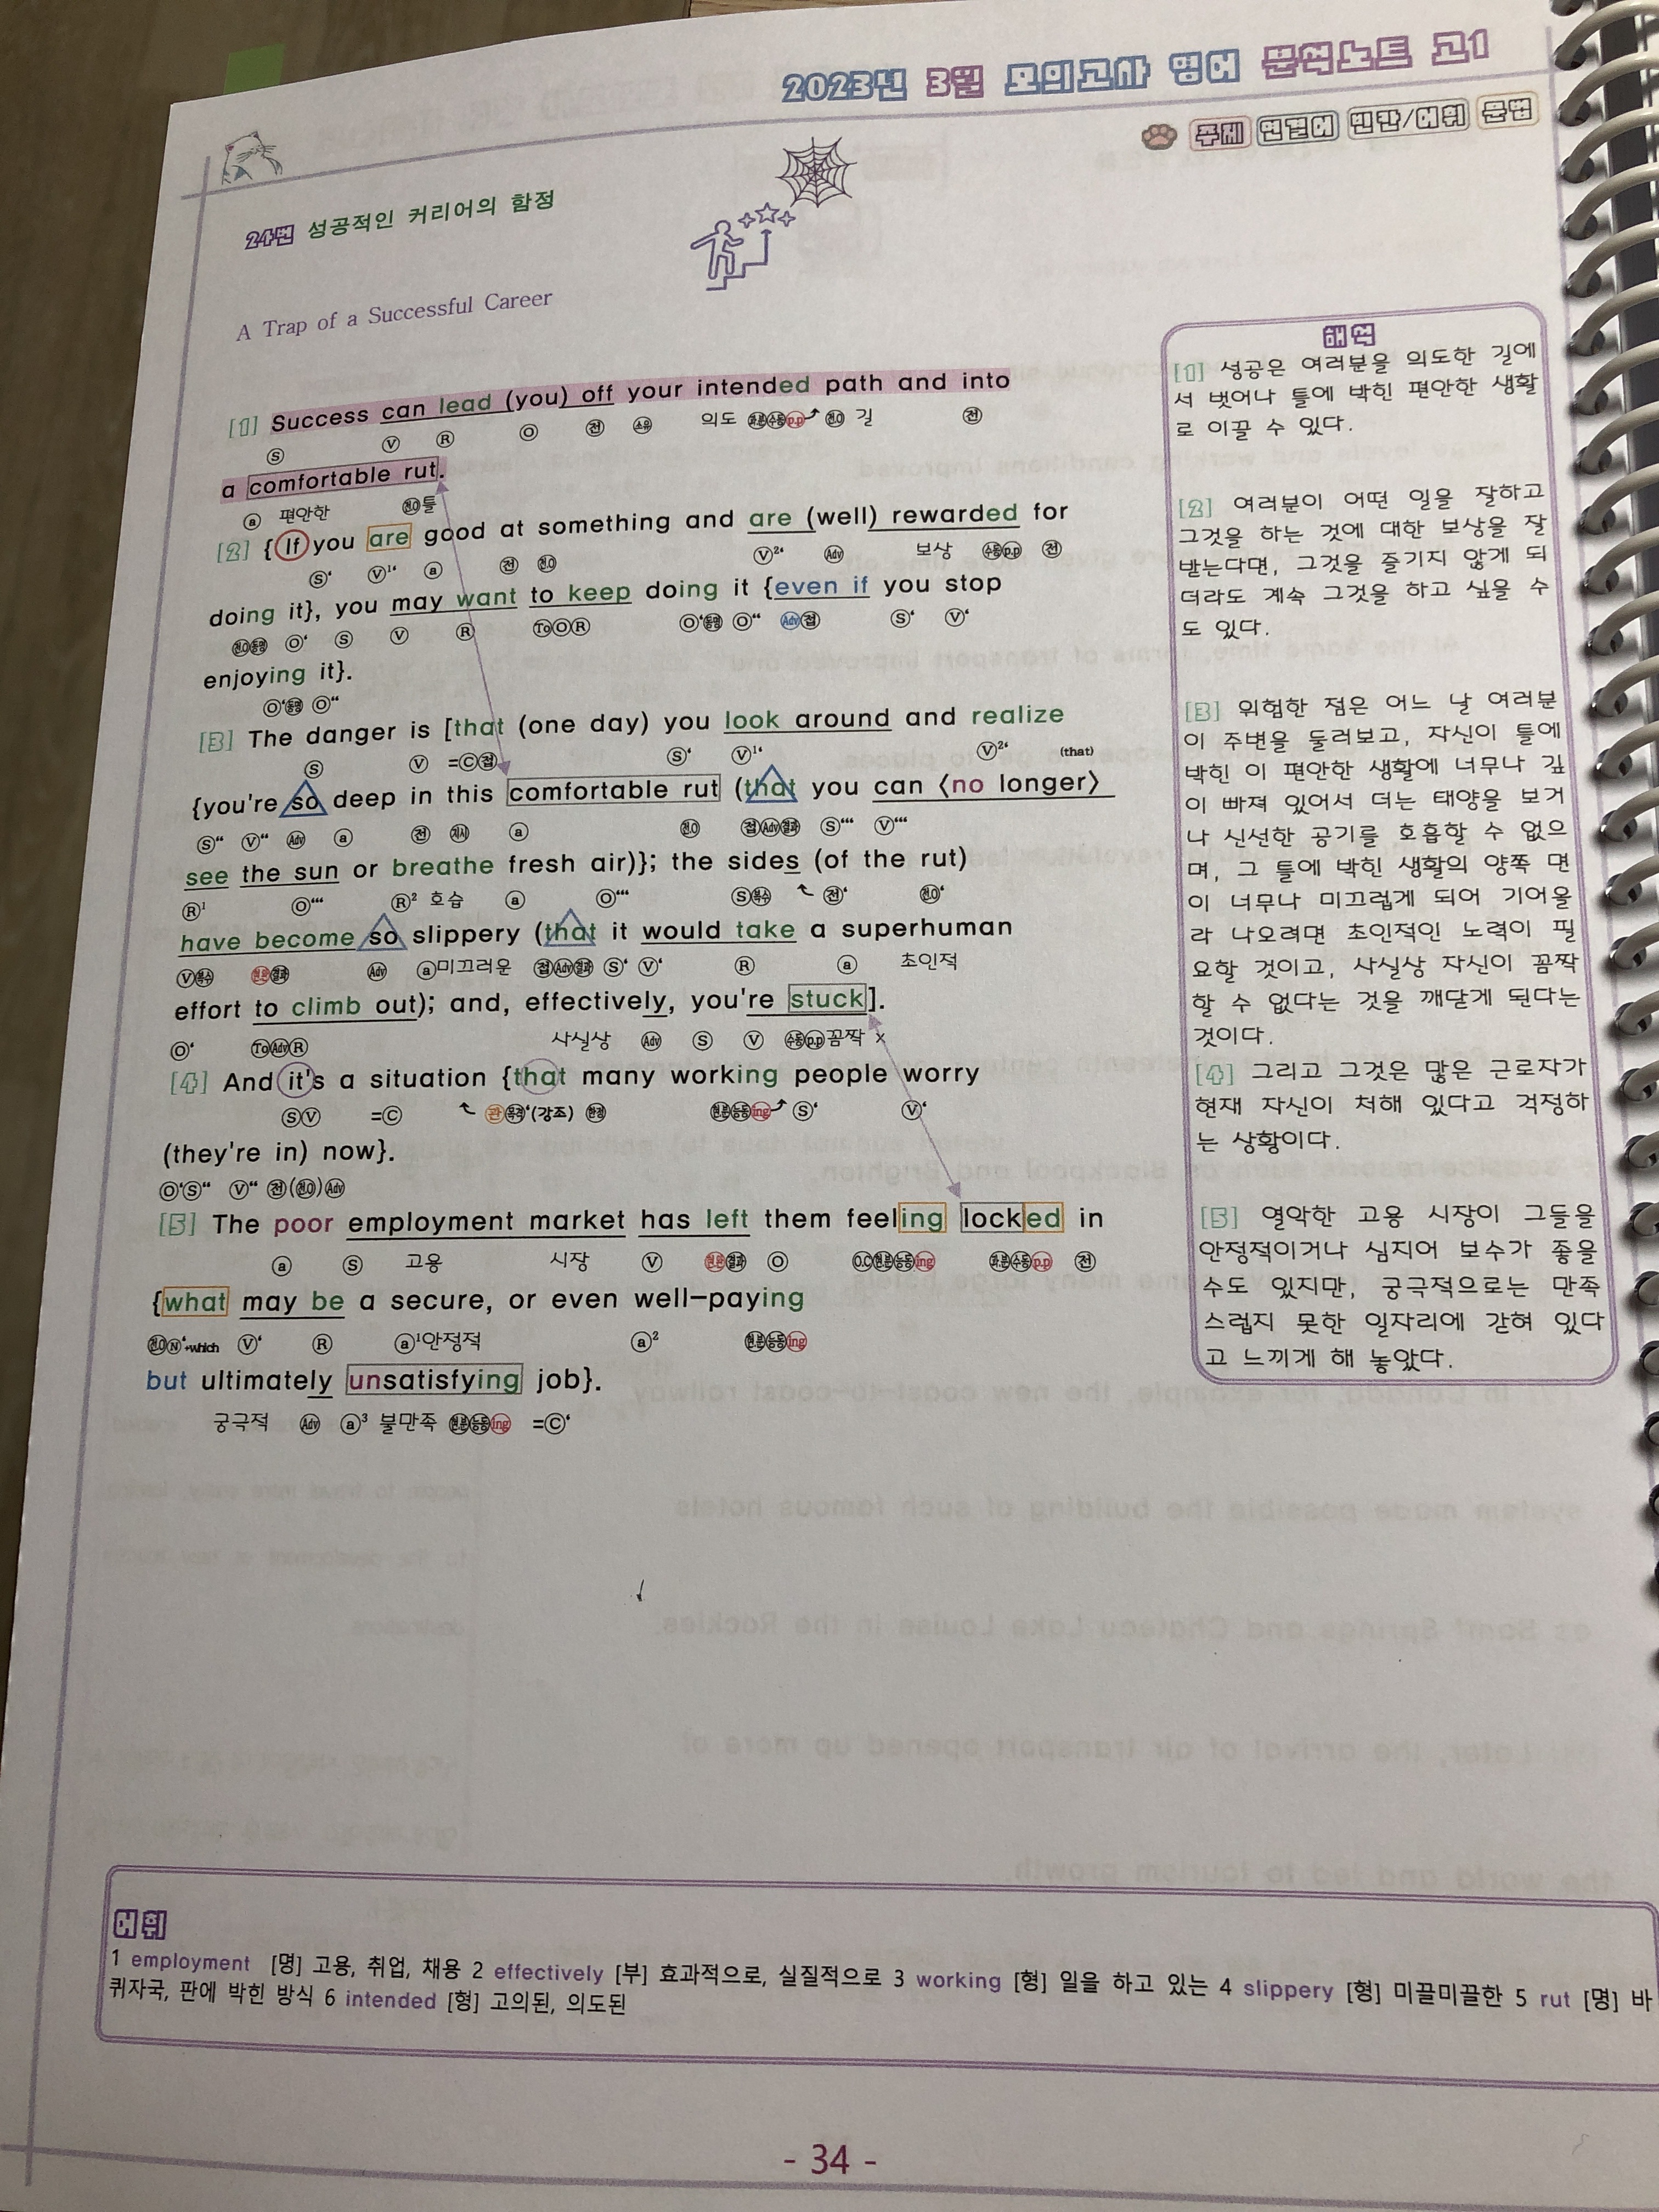 2023년 3월 모의고사 영어 분석노트 고1
주제 연결어 빈칸/어휘 문법
24번 성공적인 커리어의 함정
A Trap of a Successful Career
[1] Success can lead (you) off your intended path and into
Ⓢ Ⓥ Ⓡ Ⓞ 전 소유 의도 p.p 길 전
a comfortable rut.
ⓐ 편안한 틀
[2] {If you are good at something and are (well) rewarded for
Ⓢ‘ Ⓥ¹‘ ⓐ 전 전.O Ⓥ²‘ Adv 보상 수동 p.p 전
doing it}, you may want to keep doing it {even if you stop
Ⓞ‘ Ⓢ Ⓥ Ⓡ ToⓄⓇ Ⓞ‘동명 Ⓞ“ Adv접 Ⓢ‘ Ⓥ‘
enjoying it}.
Ⓞ‘동명 Ⓞ“
[3] The danger is [that (one day) you look around and realize
Ⓢ Ⓥ =Ⓒ접 Ⓢ‘ Ⓥ¹‘ Ⓥ²‘ (that)
{you're so deep in this comfortable rut (that you can 〈no longer〉
Ⓢ“ Ⓥ“ Adv ⓐ 전 지시 ⓐ 전.O 접Adv결과 Ⓢ“‘ Ⓥ“‘
see the sun or breathe fresh air)}; the sides (of the rut)
Ⓡ¹ Ⓞ“‘ Ⓡ² 호흡 ⓐ Ⓞ“‘ Ⓢ복수 전‘ 전.O‘
have become so slippery (that it would take a superhuman
Ⓥ복수 현완결과 Adv ⓐ미끄러운 접Adv결과 Ⓢ‘ Ⓥ‘ Ⓡ ⓐ 초인적
effort to climb out); and, effectively, you're stuck].
Ⓞ‘ ToAdvⓇ 사실상 Adv Ⓢ Ⓥ 수동p.p꼼짝 ×
[4] And it's a situation {that many working people worry
ⓈⓋ =Ⓒ 관목적‘(강조) 한정 현분능동ing Ⓢ‘ Ⓥ‘
(they're in) now}.
Ⓞ‘Ⓢ“ Ⓥ“ 전(전.O)Adv
[5] The poor employment market has left them feeling locked in
ⓐ Ⓢ 고용 시장 Ⓥ 현완결과 Ⓞ O.C현분능동ing 과.분수동p.p 전
{what may be a secure, or even well-paying
전.OⓃ‘+which Ⓥ‘ Ⓡ ⓐ¹안정적 ⓐ² 현분능동ing
but ultimately unsatisfying job}.
궁극적 Adv ⓐ³ 불만족 현분능동ing =Ⓒ‘
해석
[1] 성공은 여러분을 의도한 길에
서 벗어나 틀에 박힌 편안한 생활
로 이끌 수 있다.
[2] 여러분이 어떤 일을 잘하고
그것을 하는 것에 대한 보상을 잘
받는다면, 그것을 즐기지 않게 되
더라도 계속 그것을 하고 싶을 수
도 있다.
[3] 위험한 점은 어느 날 여러분
이 주변을 둘러보고, 자신이 틀에
박힌 이 편안한 생활에 너무나 깊
이 빠져 있어서 더는 태양을 보거
나 신선한 공기를 호흡할 수 없으
며, 그 틀에 박힌 생활의 양쪽 면
이 너무나 미끄럽게 되어 기어올
라 나오려면 초인적인 노력이 필
요할 것이고, 사실상 자신이 꼼짝
할 수 없다는 것을 깨닫게 된다는
것이다.
[4] 그리고 그것은 많은 근로자가
현재 자신이 처해 있다고 걱정하
는 상황이다.
[5] 열악한 고용 시장이 그들을
안정적이거나 심지어 보수가 좋을
수도 있지만, 궁극적으로는 만족
스럽지 못한 일자리에 갇혀 있다
고 느끼게 해 놓았다.
어휘
1 employment [명] 고용, 취업, 채용 2 effectively [부] 효과적으로, 실질적으로 3 working [형] 일을 하고 있는 4 slippery [형] 미끌미끌한 5 rut [명] 바
퀴자국, 판에 박힌 방식 6 intended [형] 고의된, 의도된
- 34 -